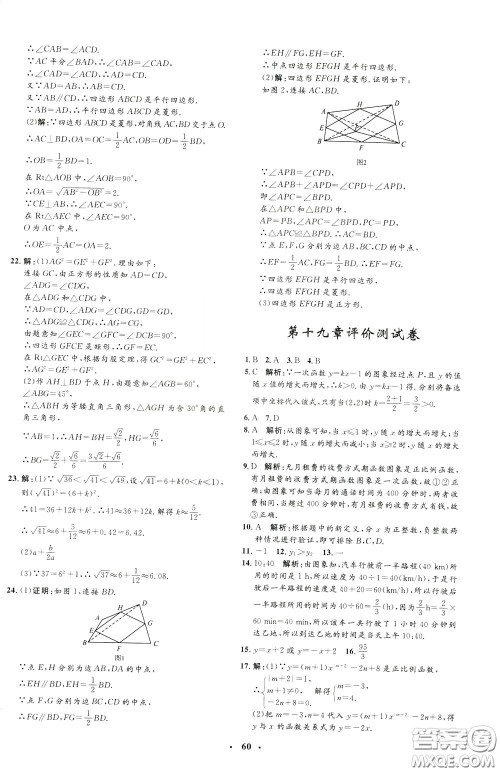 ∴∠CAB=∠ACD.
∵AC平分∠BAD,∴∠CAB=∠CAD.
∴∠CAD=∠ACD,∴AD=CD.
又∵AD=AB,∴AB=CD.
又∵AB∥CD,∴四边形ABCD是平行四边形.
又∵AD=AB,∴四边形ABCD是菱形.
(2)解:∵四边形ABCD是菱形,对角线AC,BD交于点O.
∴AC⊥BD,OA=OC=1/2AC,OB=OD=1/2BD,
∴OB=1/2BD=1.
在Rt△AOB中,∠AOB=90°.
∴OA=√(AB²-OB²)=2.
∵CE⊥AB,∴∠AEC=90°.
在Rt△AEC中,∠AEC=90°,
O为AC中点.
∴OE=1/2AC=OA=2.
22.解:(1)AG²=GE²+GF².理由如下:
连接GC,由正方形的性质知
AD=CD,∠ADG=∠CDG.
在△ADG和△CDG中,
∴△ADG≌△CDG,∴AG=CG.
由题意知∠GEC=∠GFC=∠DCB=90°,
∴四边形GFCE是矩形,∴GE=CF.
在Rt△GFC中,根据勾股定理,得CG²=GF²+CF²,
∴AG²=GE²+GF².
(2)作AH⊥BD于点H,由题意知∠AGB=60°,
∠ABG=45°.
∴△ABH为等腰直角三角形,△AGH为含30°的直
角三角形.
∵AB=1,∴AH=BH=√2/2,HG=√6/6.
∴BG=√2/2+√6/6=(3√2+√6)/6.
23.解:(1)∵√36<√41<√49,设√41=6+k(0<k<1),
∴41=36+12k+k².∴41≈36+12k.解得k≈5/12.
∴√41≈6+5/12≈6+0.42=6.42.
(2)a+b/2a
(3)∵√37≈6+1/12,∴√37≈6+0.08=6.08.
24.(1)证明:如图1,连接BD.
A
H
D
E
G
B
F
C
图1
∵点E,H分别为边AB,DA的中点,
∴EH∥BD,EH=1/2BD.
∵点F,G分别为边BC,CD的中点,
∴FG∥BD,FG=1/2BD,
∴EH∥FG,EH=GF.
∴中点四边形EFGH是平行四边形.
(2)解:四边形EFGH是菱形.证明如下:
如图2,连接AC,BD.
A
H
D
E
P
G
B
F
C
图2
∵∠APB=∠CPD,
∴∠APB+∠APD=∠CPD+∠APD,
即∠BPD=∠APC.
在△APC和△BPD中
AP=PB,∠APC=∠BPD,PC=PD,
∴△APC≌△BPD,∴AC=BD.
∵点E,F,G分别为边AB,BC,CD的中点,
∴EF=1/2AC,FG=1/2BD,
∴EF=FG.
∵四边形EFGH是平行四边形,
∴四边形EFGH是菱形.
(3)四边形EFGH是正方形.
第十九章评价测试卷
1.B 2.A 3.B 4.B
5.C 解析:∵一次函数y=kx-1的图象经过点P,且y的值
随x值的增大而增大,∴k>0.由y=kx-1将各备选
项中坐标代入该式,只有当(2,2)时k=(2+1)/2=3/2>0.
6.A 7.D
8.A 解析:从图象可知,当x≤1时,y随x的增大而增大;当
1≤x≤2时,y随x的增大而减小;当x≥2时,y随x的
增大而增大.
9.D 解析:无月租费的收费方式期函数图象是正比例函数,
有月租费的收费方式期函数图象是一次函数,故①②正
确;由图象可知当每月的通话时间为400分钟时,两者收
费相同,超过400分钟,选择有月租费的收费方式省钱,
故③正确.
10.A 解析:根据题中的新定义,分x为正整数,负整数两
种情况进行验证,即可排除B,C,D.
11.-1 12.y₁>y₂ 13.一
14.10:40 解析:由图象知,汽车行驶前一半路程(40 km)所
用的时间是1h,所以速度为40÷1=40(km/h),于是行驶
后一半路程的速度是40+20=60(km/h),所以行驶后
一半路程所用的时间为40÷60=2/3(h).因为2/3h=2/3×
60 min=40 min,所以该车一共行驶了1小时40分钟到
达乙地,所以到达乙地的时间是当天上午10:40.
15.y=x+2或y=-x+2 16.95/3
17.解:(1)∵y=(m+1)x^(|m+2|)-2n+8是正比例函数,
∴{|m+2|=1, m+1≠0, -2n+8=0, ∴{m=-3, n=4.
(2)把m=-3,n=4代入y=(m+1)x^(|m+2|)-2n+8,得
y与x的函数关系式为y=-2x.
60
答案圈
MXQE.COM